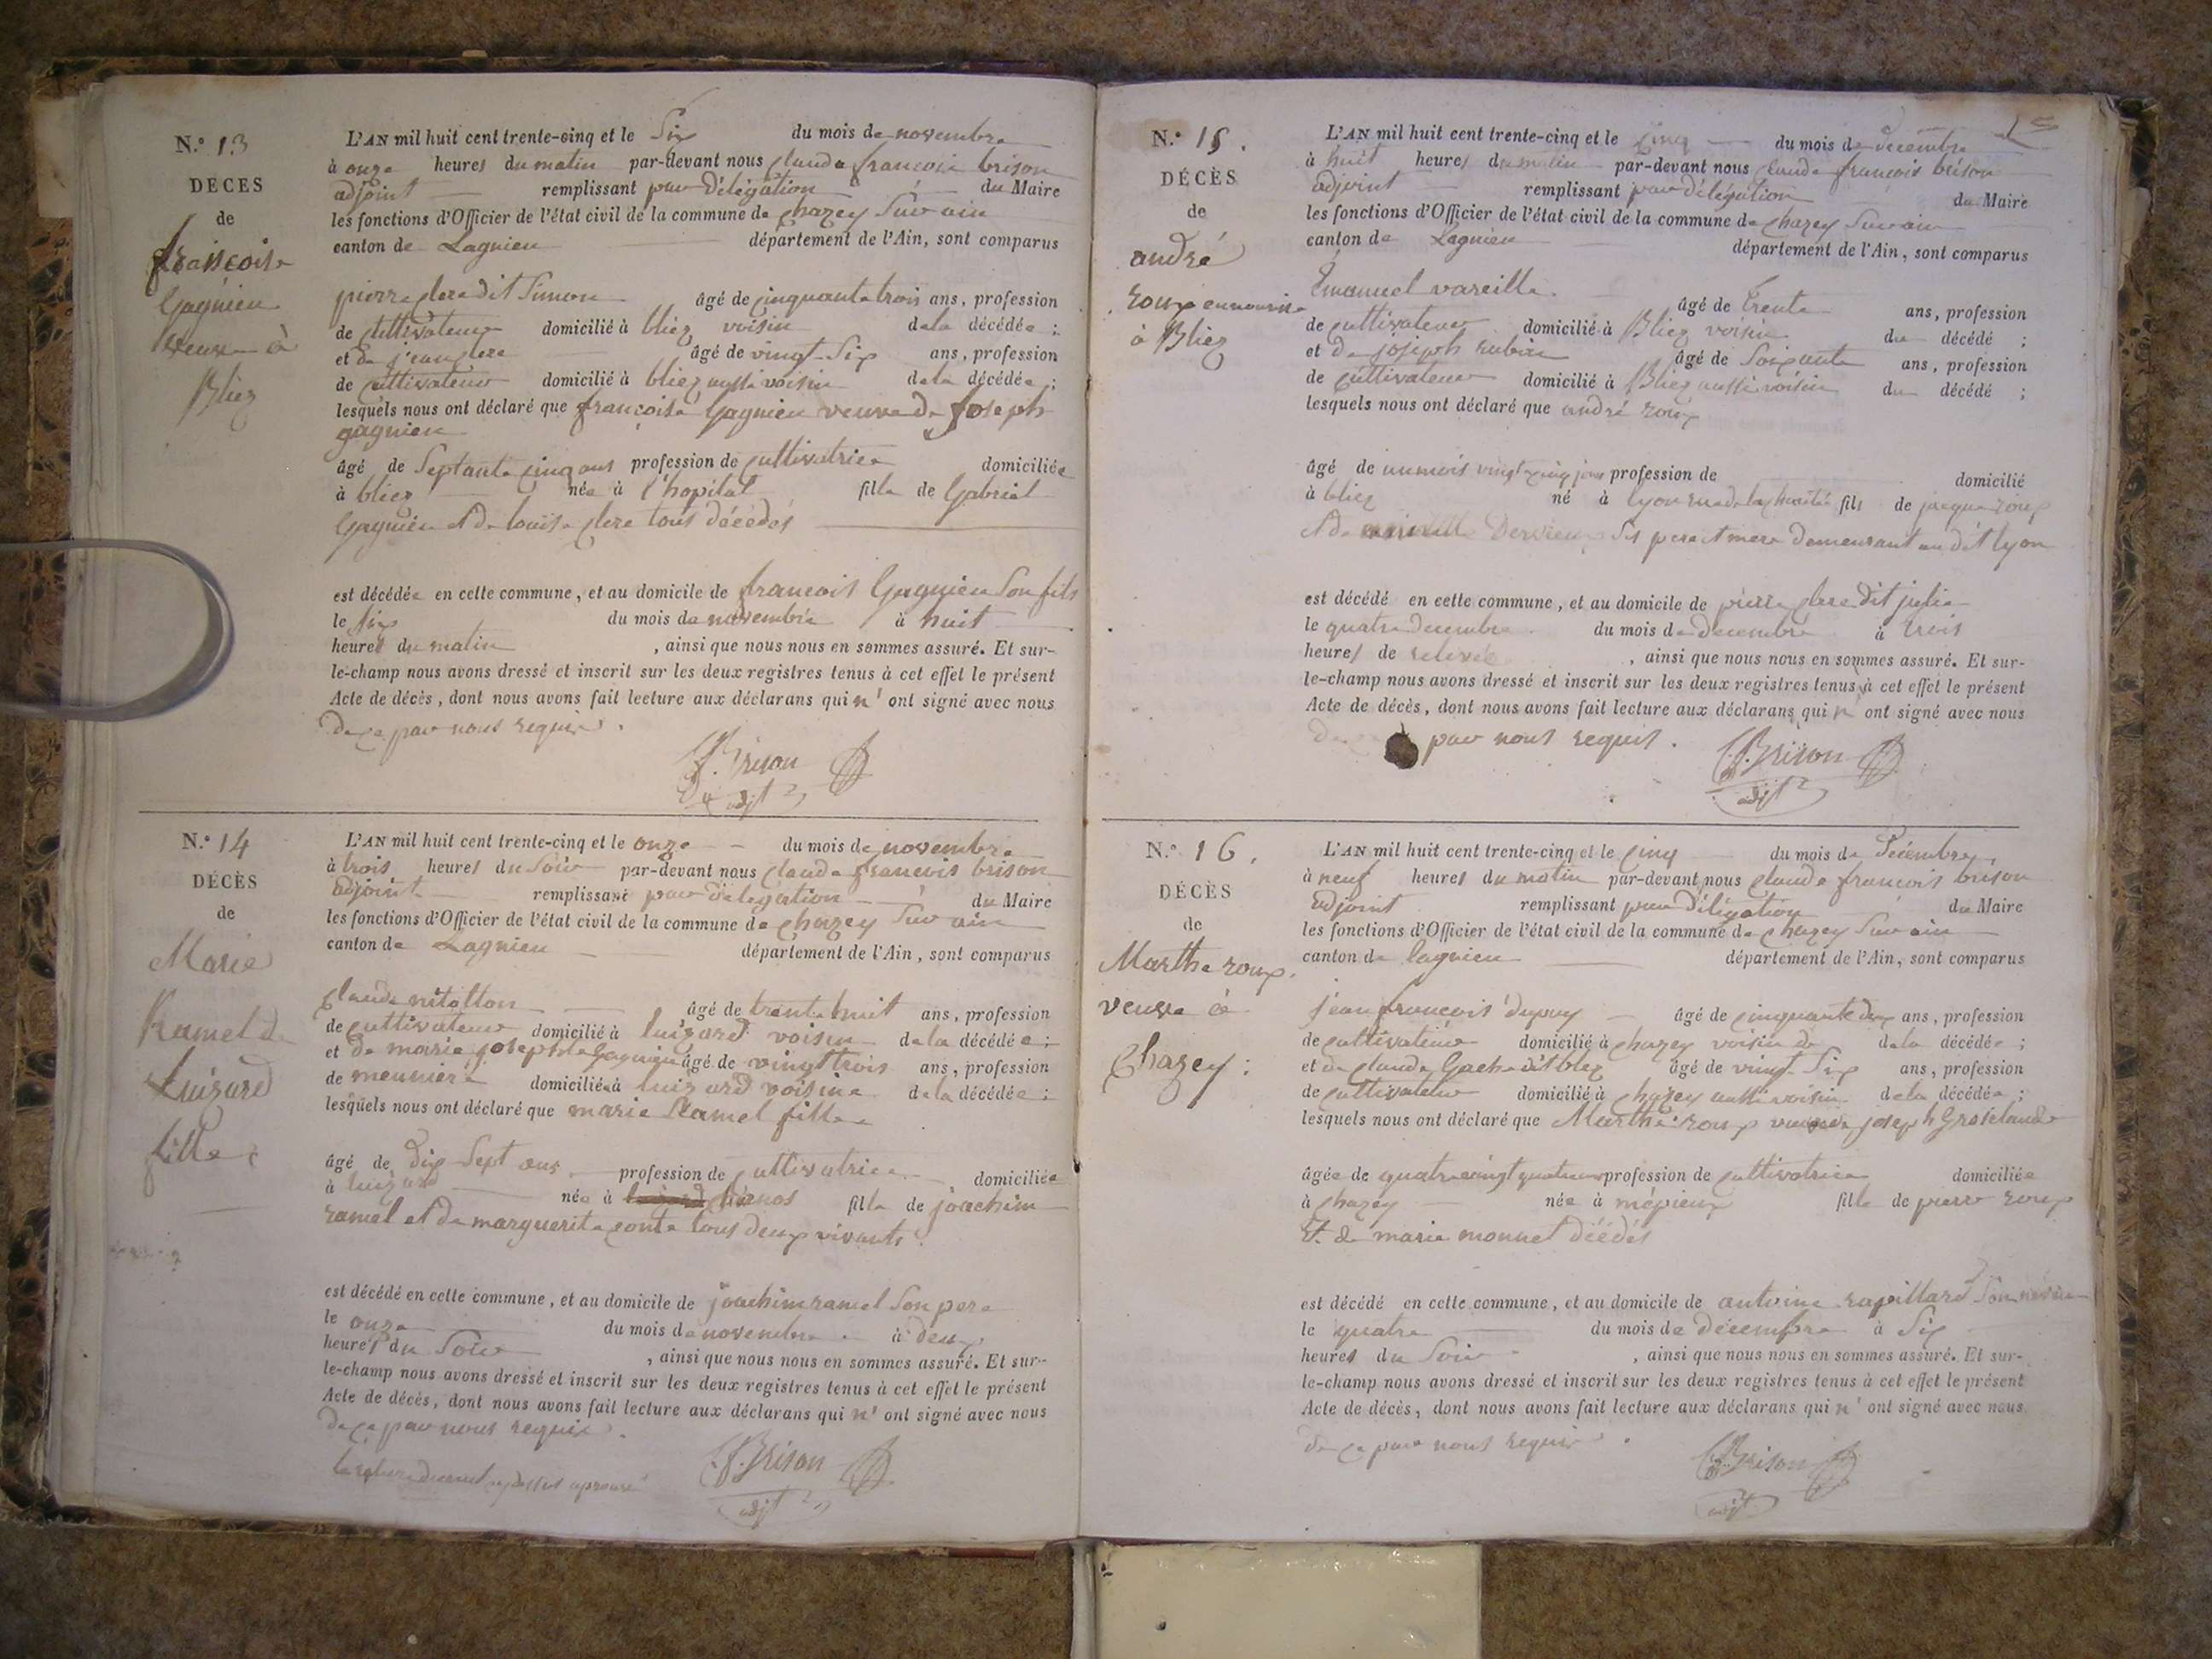 N.° 13
DÉCÈS
de
françoise
Gagnieu
veuve à
Bliez
L'AN mil huit cent trente-cinq et le Six du mois de novembre
à onze heures du matin par-devant nous claude francois brison
adjoint remplissant par Délégation du Maire
les fonctions d'Officier de l'état civil de la commune de chazey Sur ain
canton de Lagnieu département de l'Ain, sont comparus
pierre clere dit Simon âgé de cinquante trois ans, profession
de cultivateur domicilié à bliez voisin de la décédée ;
et de jean clere âgé de vingt Six ans, profession
de cultivateur domicilié à bliez aussi voisin de la décédée ;
lesquels nous ont déclaré que françoise Gagnieu veuve de Joseph
gagnieu
âgé de Septante cinq ans profession de cultivatrice domiciliée
à bliez née à l'hopital fille de Gabriel
Gagnieu et de louise clere tous décédés
est décédée en cette commune, et au domicile de francois Gagnieu Son fils
le six du mois de novembre à huit
heures du matin , ainsi que nous nous en sommes assuré. Et sur-
le-champ nous avons dressé et inscrit sur les deux registres tenus à cet effet le présent
Acte de décès, dont nous avons fait lecture aux déclarans qui n' ont signé avec nous
de ce par nous requis.
C.F. Brison
adjt
N.° 14
DÉCÈS
de
Marie
Ramel de
Luizard
fille
L'AN mil huit cent trente-cinq et le onze du mois de novembre
à trois heures du Soir par-devant nous claude francois brison
adjoint remplissant par délégation du Maire
les fonctions d'Officier de l'état civil de la commune de chazey Sur ain
canton de Lagnieu département de l'Ain, sont comparus
claude nitollon âgé de trente huit ans, profession
de cultivateur domicilié à luizard voisin de la décédée ;
et de marie josephte Gagnieu âgé de vingt trois ans, profession
de meuniere domiciliée à luizard voisine de la décédée ;
lesquels nous ont déclaré que marie Ramel fille
âgé de dix Sept ans profession de cultivatrice domiciliée
à luizard née à fille de joachim
ramel et de marguerite conte tous deux vivants.
est décédé en cette commune, et au domicile de joachim ramel Son pere
le onze du mois de novembre à deux
heures du Soir , ainsi que nous nous en sommes assuré. Et sur-
le-champ nous avons dressé et inscrit sur les deux registres tenus à cet effet le présent
Acte de décès, dont nous avons fait lecture aux déclarans qui n' ont signé avec nous
de ce par nous requis.
C.F. Brison
adjt
N.° 15.
DÉCÈS
de
andré
roux en nourrice
à Bliez
L'AN mil huit cent trente-cinq et le cinq du mois de decembre
à huit heures du matin par-devant nous claude françois brison
adjoint remplissant par délégation du Maire
les fonctions d'Officier de l'état civil de la commune de chazey Sur ain
canton de Lagnieu département de l'Ain, sont comparus
Emanuel vareille âgé de trente ans, profession
de cultivateur domicilié à Bliez voisin du décédé ;
et de joseph rubin âgé de Soixante ans, profession
de cultivateur domicilié à Bliez aussi voisin du décédé ;
lesquels nous ont déclaré que andré roux
âgé de un mois vingt cinq jours profession de domicilié
à bliez né à lyon rue de la charité fils de jacque roux
et de Dervieux Ses pere et mere demeurant au dit lyon
est décédé en cette commune, et au domicile de pierre clere dit julie
le quatre decembre du mois de decembre à trois
heures de relevée , ainsi que nous nous en sommes assuré. Et sur-
le-champ nous avons dressé et inscrit sur les deux registres tenus à cet effet le présent
Acte de décès, dont nous avons fait lecture aux déclarans qui n' ont signé avec nous
de par nous requis.
C.F. Brison
adjt
N.° 16.
DÉCÈS
de
Marthe roux
veuve à
Chazey :
L'AN mil huit cent trente-cinq et le cinq du mois de Décembre
à neuf heures du matin par-devant nous claude francois brison
adjoint remplissant par Délégation du Maire
les fonctions d'Officier de l'état civil de la commune de chazey Sur ain
canton de lagnieu département de l'Ain, sont comparus
jean francois dupuy âgé de cinquante deux ans, profession
de cultivateur domicilié à chazey voisin de de la décédée ;
et de claude Gache dit blez âgé de vingt Six ans, profession
de cultivateur domicilié à chazey aussi voisin de la décédée ;
lesquels nous ont déclaré que Marthe roux veuve de joseph Groslande
âgée de quatre vingt quatre ans profession de cultivatrice domiciliée
à chazey née à mépieux fille de pierre roux
Et de marie monnet décédés
est décédé en cette commune, et au domicile de antoine rapillard Son neveu
le quatre du mois de décembre à Six
heures du Soir , ainsi que nous nous en sommes assuré. Et sur-
le-champ nous avons dressé et inscrit sur les deux registres tenus à cet effet le présent
Acte de décès, dont nous avons fait lecture aux déclarans qui n' ont signé avec nous
de ce par nous requis.
C.F. Brison
adjt